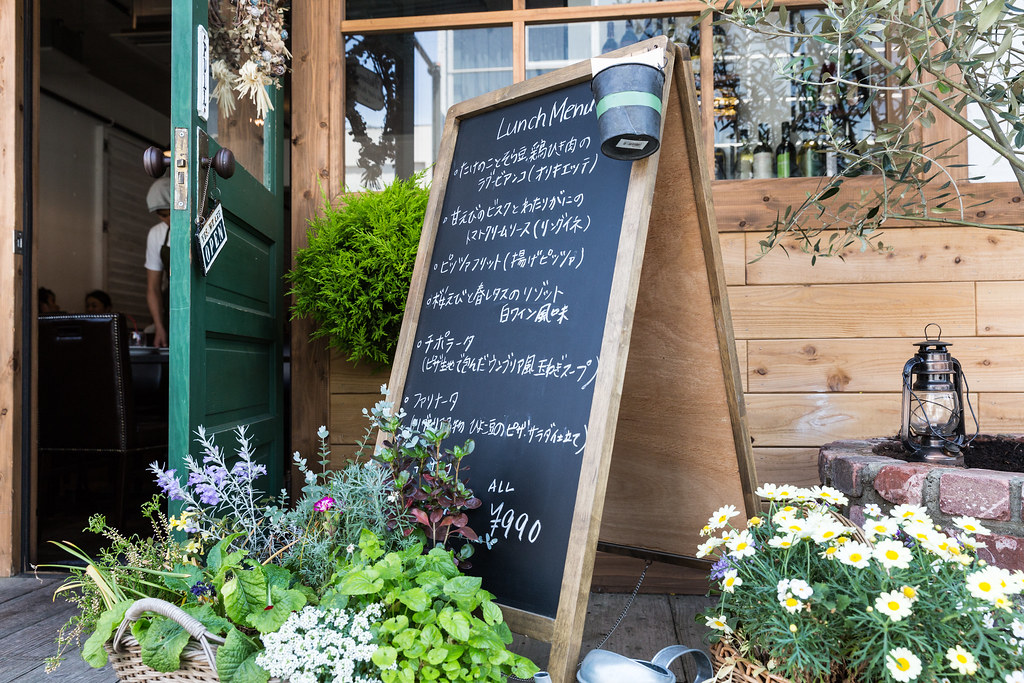 Lunch Menu
・たけのことそら豆、鶏ひき肉の
ラグービアンコ(オリキエッテ)
・甘えびのビスクとわたりがにの
トマトクリームソース(リングイネ)
・ピッツァフリット(揚げピッツァ)
・桜えびと春レタスのリゾット
白ワイン風味
・チポラータ
(ピザ生地で包んだウンブリア風玉ねぎスープ)
・ファリナータ
ひよこ豆のピザ、サラダ仕立て)
ALL
¥990
OPEN